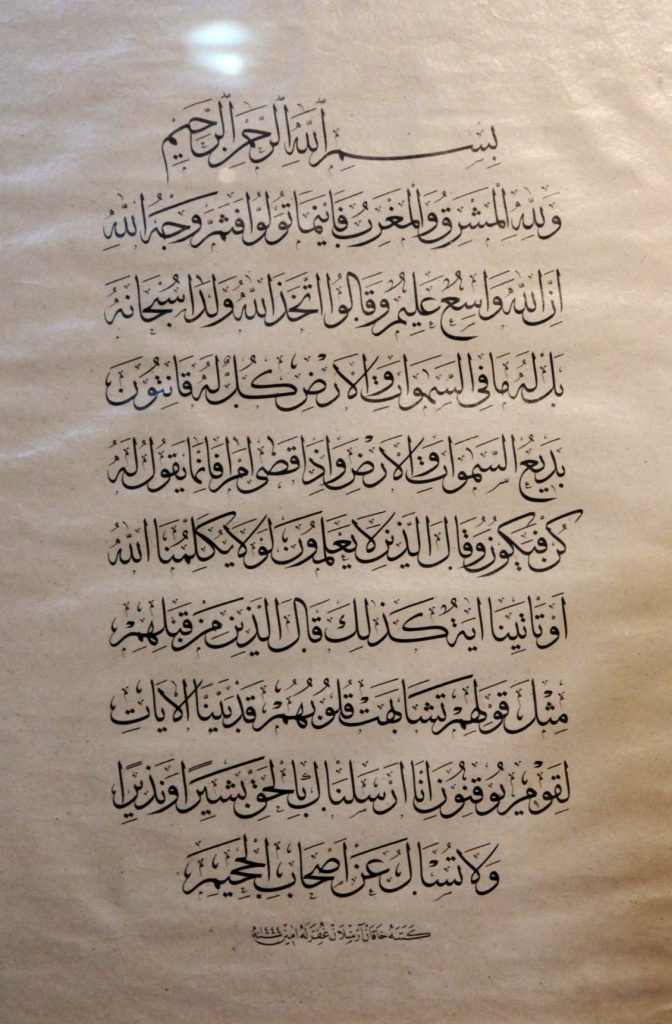 بِسْمِ اللّٰهِ الرَّحْمٰنِ الرَّحِيمِ
وَلِلّٰهِ الْمَشْرِقُ وَالْمَغْرِبُ فَاَيْنَمَا تُوَلُّوا فَثَمَّ وَجْهُ اللّٰهِ
اِنَّ اللّٰهَ وَاسِعٌ عَلِيمٌ وَقَالُوا اتَّخَذَ اللّٰهُ وَلَدًا سُبْحَانَهُ
بَلْ لَهُ مَا فِي السَّمٰوَاتِ وَالْاَرْضِ كُلٌّ لَهُ قَانِتُونَ
بَدِيعُ السَّمٰوَاتِ وَالْاَرْضِ وَاِذَا قَضٰى اَمْرًا فَاِنَّمَا يَقُولُ لَهُ
كُنْ فَيَكُونُ وَقَالَ الَّذِينَ لَا يَعْلَمُونَ لَوْلَا يُكَلِّمُنَا اللّٰهُ
اَوْ تَاْتِينَا اٰيَةٌ كَذٰلِكَ قَالَ الَّذِينَ مِنْ قَبْلِهِمْ
مِثْلَ قَوْلِهِمْ تَشَابَهَتْ قُلُوبُهُمْ قَدْ بَيَّنَّا الْاٰيَاتِ
لِقَوْمٍ يُوقِنُونَ اِنَّا اَرْسَلْنَاكَ بِالْحَقِّ بَشِيرًا وَنَذِيرًا
وَلَا تُسْاَلُ عَنْ اَصْحَابِ الْجَحِيمِ
كتبه خاقان ارسلان غفر له امين